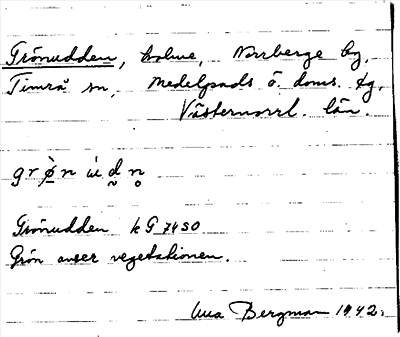 Grönudden, holme, Norrberge by,
Timrå sn, Medelpads ö. doms. tg,
Västernorrl. län.
grø̀n ùd̰n̥
Grönudden kG 7430
Grön avser vegetationen.
Bergman 1942.